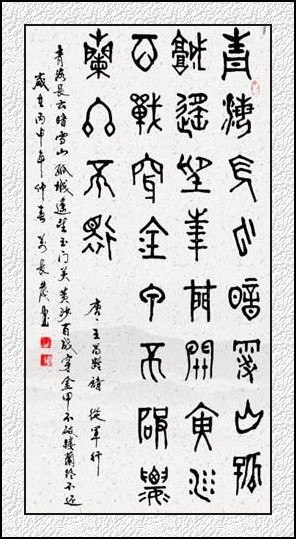 青海長云暗雪山孤
城遥望玉門關黄沙
百戰穿金甲不破樓
蘭終不還
唐王昌龄詩從軍行
青海長云暗雪山孤城遥望玉门关黄沙百战穿金甲不破楼蘭终不还
歲在丙申年仲春